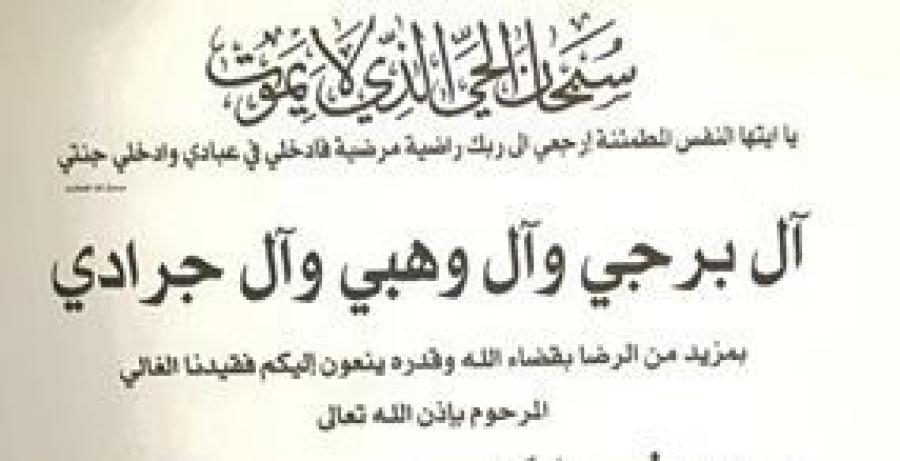 سبحان الحي الذي لا يموت
يا ايتها النفس المطمئنة إرجعي ال ربك راضية مرضية فادخلي في عبادي وادخلي جنتي
آل برجي وآل وهبي وآل جرادي
بمزيد من الرضا بقضاء الله وقدره ينعون إليكم فقيدنا الغالي
المرحوم بإذن الله تعال